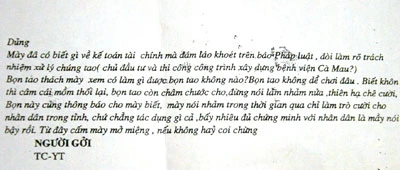 Dũng
Mày đã có biết gì về kế toán tài chính mà dám láo khoét trên báo Pháp luật , đòi làm rõ trách
nhiệm xử lý chúng tao( chủ đầu tư và thi công công trình xây dựng bệnh viện Cà Mau?)
Bọn tao thách mày xem có làm gì được bọn tao không nào?Bọn tao không dể chơi đâu . Biết khôn
thì câm cái mồm thối lại, bọn tao còn châm chước cho,đừng nói lảm nhảm nữa ,thiên hạ chê cười,
Bọn này cũng thông báo cho mày biết, mày nói nhảm trong thời gian qua chỉ làm trò cười cho
nhân dân trong tỉnh, chứ chẳng tác dụng gì cả ,bấy nhiêu đủ chứng minh với nhân dân là mầy nói
bậy rồi. Từ đây cấm mày mở miệng , nếu không hay coi chừng
NGƯỜI GỞI
TC-YT